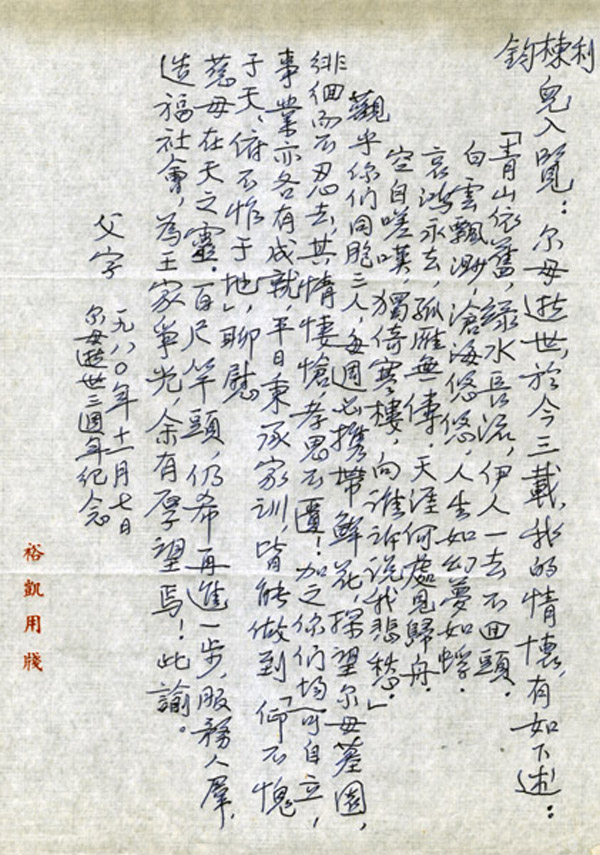 鈞棟利
兒入覽：尔母逝世，於今三載，我的情懷，有如下述：
「青山依舊，綠水長流，伊人一去不回頭．
白雲飄渺，滄海悠悠，人生如幻夢如蜉．
哀鴻永去，孤雁無儔．天涯何處見歸舟．
空自嗟嘆，獨倚寒樓，向誰訴說我悲愁．」
觀乎你們同胞三人，每週必携帶鮮花，探望尔母墓園，
徘徊而不忍去，其情悽愴，孝思不匱！加之你們均可自立，
事業亦各有成就，平日秉承家訓，皆能做到「仰不愧
于天，俯不怍于地」，聊慰
慈母在天之靈．百尺竿頭，仍希再進一步，服務人羣，
造福社會，為王家爭光，余有厚望焉！此諭。
父字 一九八〇年十一月七日
尔母逝世三週年纪念
裕凱用牋